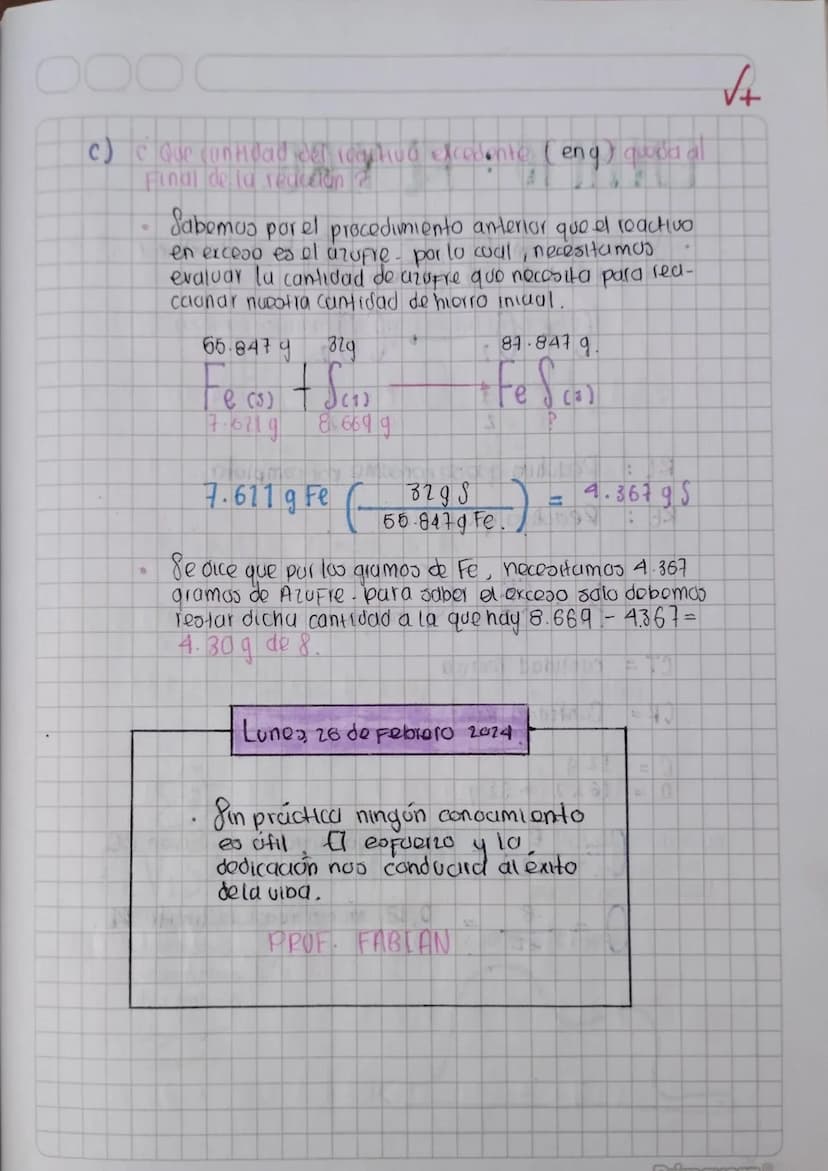 c) ¿ Que cuntidad del reactivo excedente (en g) queda al
Final de la reacción?
• Sabemos por el procedimiento anterior que el reactivo
en exceso es el azufre - por lo cual, necesitamos
evaluar la cantidad de azufre que necesita para rea-
ccionar nuestra cantidad de hierro inicial.
55.847 g 32g 87.847 g.
Fe (s) + S(s) → Fe S(s)
7.621 g 8.669 g ?
7.621 g Fe ( 32 g S / 55.847g Fe. ) = 4.367 g S
• Se dice que por los gramos de Fe, necesitamos 4.367
gramos de Azufre. para saber el exceso solo debemos
restar dicha cantidad a la que hay 8.669 - 4.367=
4.30 g de S.
Lunes 26 de Febrero 2024
• Sin práctica ningún conocimiento
es útil. El esfuerzo y la
dedicación nos conducirá al éxito
de la vida.
PROF. FABIAN